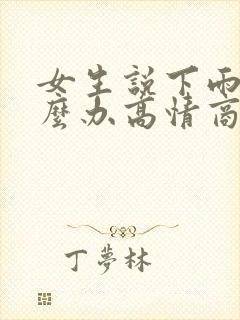 女生説下雨
麼办高情商
丁夢林